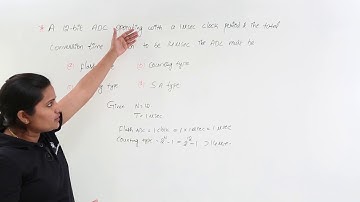 A 12-bit ADC operating with a 1μsec clock period & the total
conversion time to be 14μsec the ADC must be
flash Counting type
type S A type
Given N=12
T = 1μsec
Flash ADC = 1 clock = 1 x 1μsec = 1μsec
Counting type = 2ᴺ - 1 = 2¹² - 1 > 14μsec